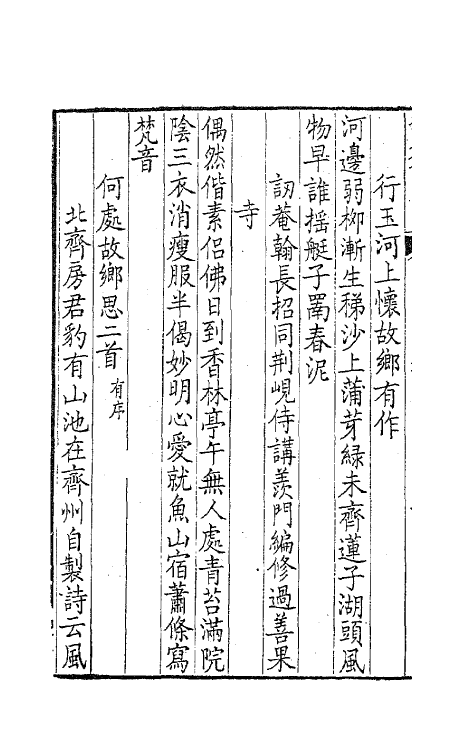 行玉河上懷故鄉有作
河邊弱柳漸生稊沙上蒲芽綠未齊蓮子湖頭風
物早誰搖艇子罱春泥
訒菴翰長招同荆峴侍講羨門編修過善果
寺
偶然偕素侶佛日到香林亭午無人處青苔滿院
陰三衣消瘦服半偈妙明心愛就魚山宿蕭條寫
梵音
何處故鄉思二首有序
北齊房君豹有山池在齊州自製詩云風